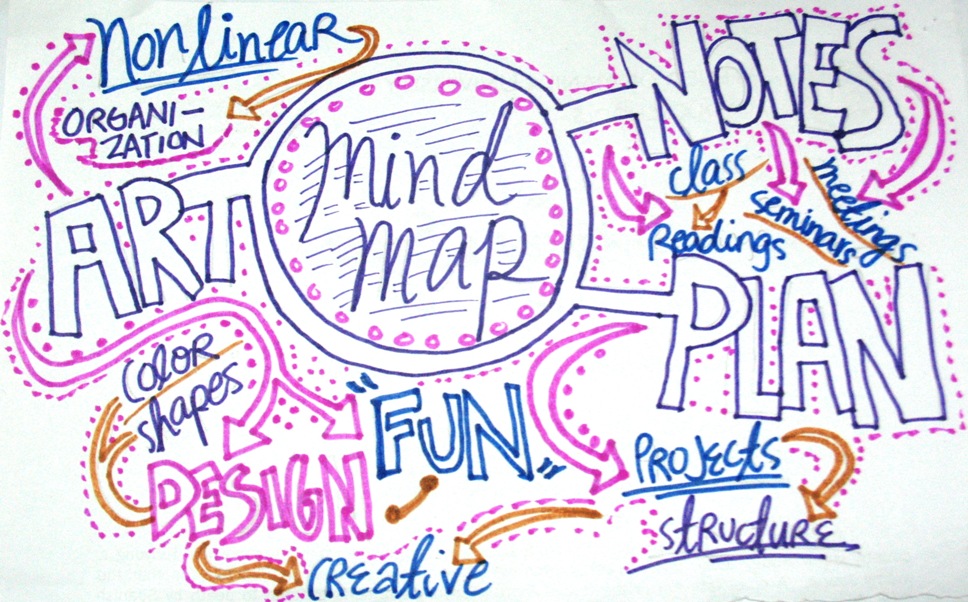 Nonlinear
ORGANI-
ZATION
Mind
Map
NOTES
class
Readings
seminars
meetings
ART
PLAN
COLOR
shapes
DESIGN
"FUN"
PROJECTS
structure
CReative